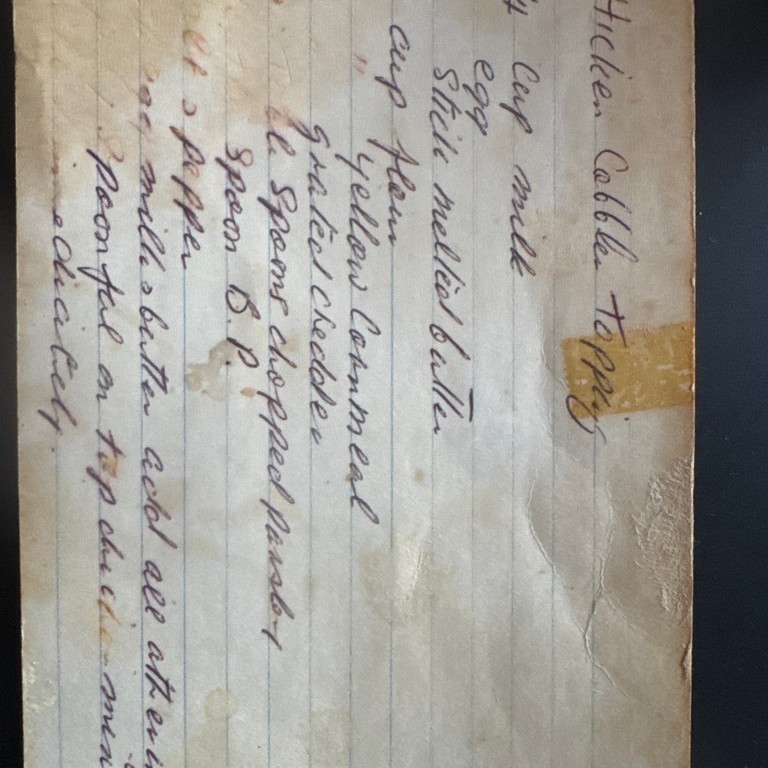 Hicken Cobbler Topping
4 Cup milk
egg
Stick melted butter
cup flour
" yellow Cornmeal
grated cheddar
le Spoons chopped parsley
Spoon B.P.
lt & pepper
milk & butter add all other in
Spoonful on top chicken min
mediately